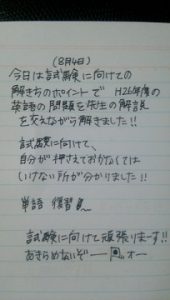 (8月4日)
今日は試験に向けての
解きちのポイントで H26年度の
英語の問題を先生の解説
を交えながら解きました!!
試験に向けて、
自分が押さえておかなくては
いけない所が分かりました!!
単語 復習
試験に向けて頑張りまーす!!
あきらめないぞー